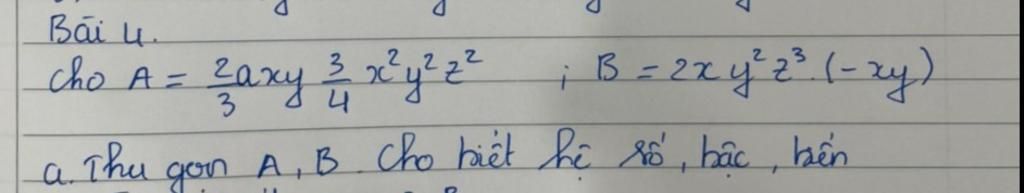 Bài 4.
Cho A = 2/3 axy 3/4 x²y²z² ; B = 2xy²z³.(-xy)
a. Thu gọn A, B. Cho biết hệ số, bậc, biến